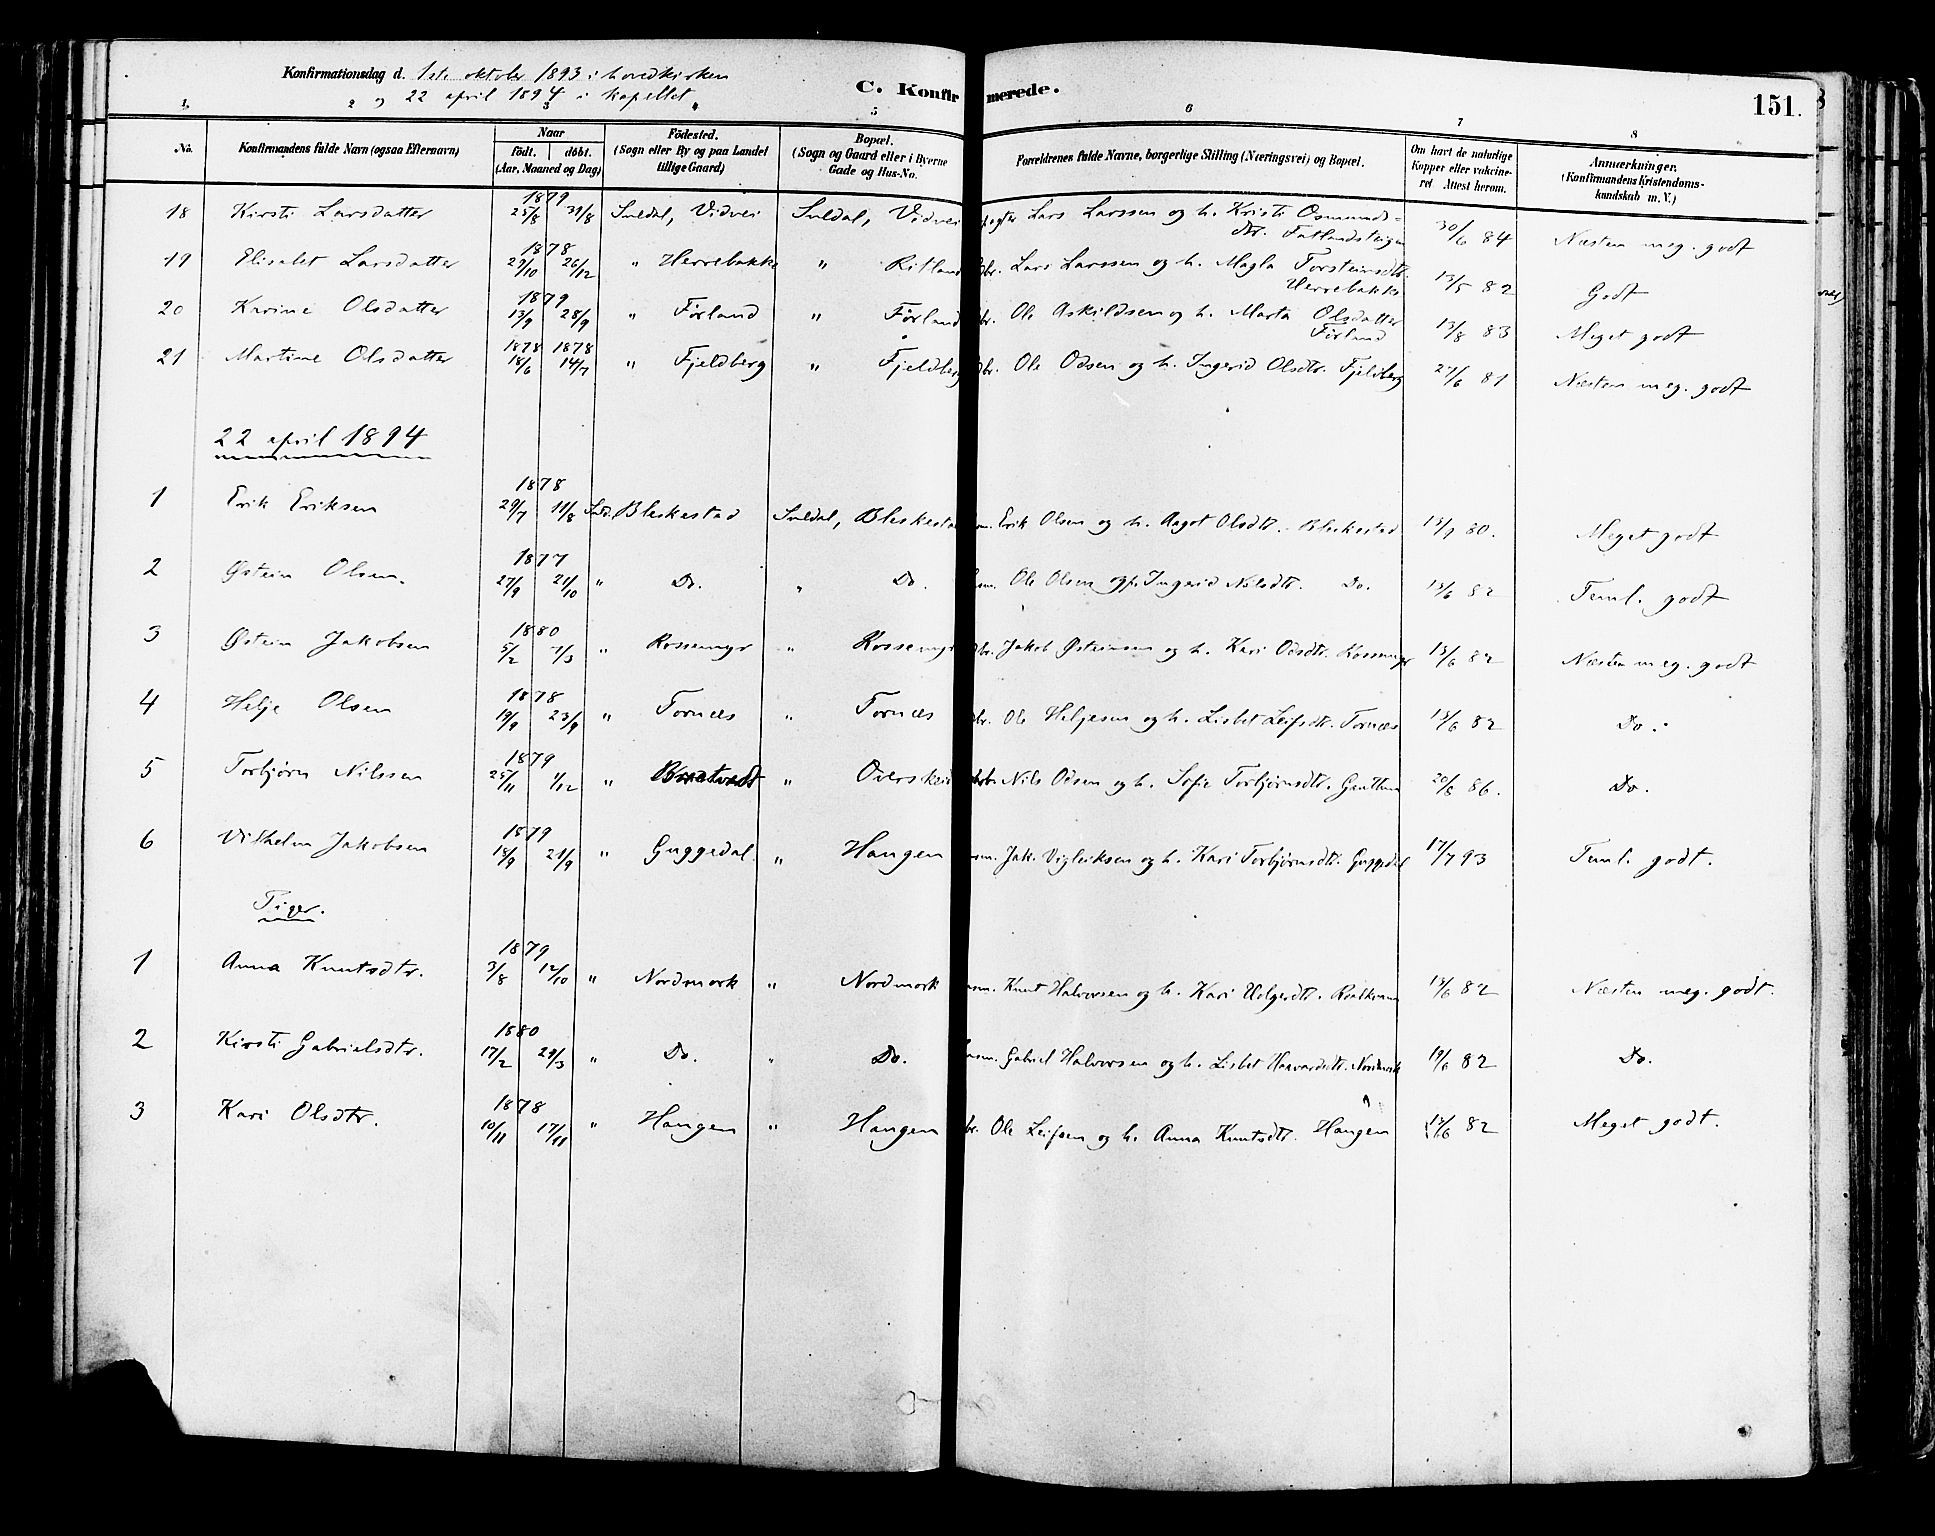 Konfirmationsdag d. 1ste oktober 1893 i hovedkirken
og 22 april 1894 i kapellet
C. Konfirmerede.
151.
1. 2 3 5 6 7 8
No. Konfirmandens fulde Navn (ogsaa Efternavn) Naar født. døbt. (Aar, Maaned og Dag) Födested. (Sogn eller By og paa Landet tillige Gaard) Bopæl. (Sogn og Gaard eller i Byerne Gade og Hus-No. Forældrenes fulde Navne, borgerlige Stilling (Næringsvei) og Bopæl. Om havt de naturlige Kopper eller vaksineret Attest herom. Anmærkninger. (Konfirmandens Kristendomskundskab m. V.)
18 Kirsti Larsdatter 1879 25/8 31/8 Suldal, Vidvei Suldal, Vidvei Lars Larssen og h. Kristi Osmundsdtr. Fatlandsteigen 30/6 84 Næsten meg. godt
19 Elisabet Larsdatter 1878 29/10 26/12 " Herrebakke " Ritland Lars Larssen og h. Magla Torsteinsdtr. Herrebakke 13/5 82 Godt
20 Karine Olsdatter 1879 13/9 28/9 " Førland " Førland Ole Askildsen og h. Marta Olsdatter Førland 13/8 83 Meget godt
21 Martine Olsdatter 1878 1878 18/6 14/7 " Fjeldberg " Fjeldberg Ole Odsen og h. Ingerid Olsdtr. Fjeldberg 27/6 81 Næsten meg. godt
22 april 1894
1 Erik Eriksen 1878 29/7 11/8 Suld. Bleskestad Suldal, Bleskestad Erik Olsen og h. Aagot Olsdtr. Bleskestad 13/7 80. Meget godt
2 Østein Olsen. 1877 27/9 21/10 " Do. " Do. Ole Olsen og h. Ingerid Nilsdtr. Do. 13/6 82 Teml. godt
3 Østein Jakobsen 1880 5/2 7/3 " Rossemyr " Rossemyr Jakob Østeinsen og h. Kari Odsdtr. Rossemyr 13/6 82 Næsten meg. godt
4 Helje Olsen 1878 19/9 23/9 " Tornæs " Tornæs Ole Heljesen og h. Lisbet Leifsdtr. Tornæs 13/6 82 Do.
5 Torbjørn Nilssen 1879 25/11 1/12 " Bratvedt " Overskeid Nils Odsen og h. Sofie Torbjørnsdtr. 20/8 86. Do.
6 Vilhelm Jakobsen 1879 18/9 21/9 " Guggedal " Haugen Jak. Vigleiksen og h. Kari Torbjørnsdtr. Guggedal 17/7 93 Teml. godt.
Piger.
1 Anna Knutsdtr. 1879 3/8 12/10 " Nordmork " Nordmork Knut Halvorsen og h. Kari Helgesdtr. Roalkvam 13/6 82 Næsten meg. godt.
2 Kirsti Gabrielsdtr. 1880 17/2 29/3 " Do. " Do. Gabriel Halvorsen og h. Lisbet Haavardsdtr. Nordmork 19/6 82 Do.
3 Kari Olsdtr. 1878 10/11 17/11 " Haugen " Haugen Ole Leifsen og h. Anna Knutsdtr. Haugen 13/6 82 Meget godt.